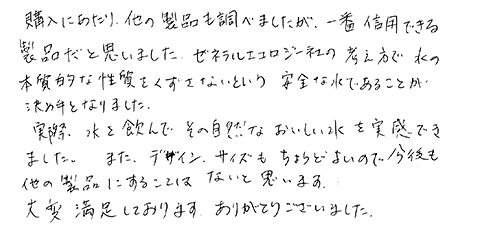 購入にあたり、他の製品も調べましたが、一番信用できる
製品だと思いました。ゼネラルエコロジー社の考え方で水の
本質的な性質をくずさないという安全な水であることが
決め手となりました。
実際、水を飲んでその自然なおいしい水を実感でき
ました。また、デザイン、サイズもちょうどよいので今後も
他の製品にすることはないと思います。
大変満足しております。ありがとうございました。